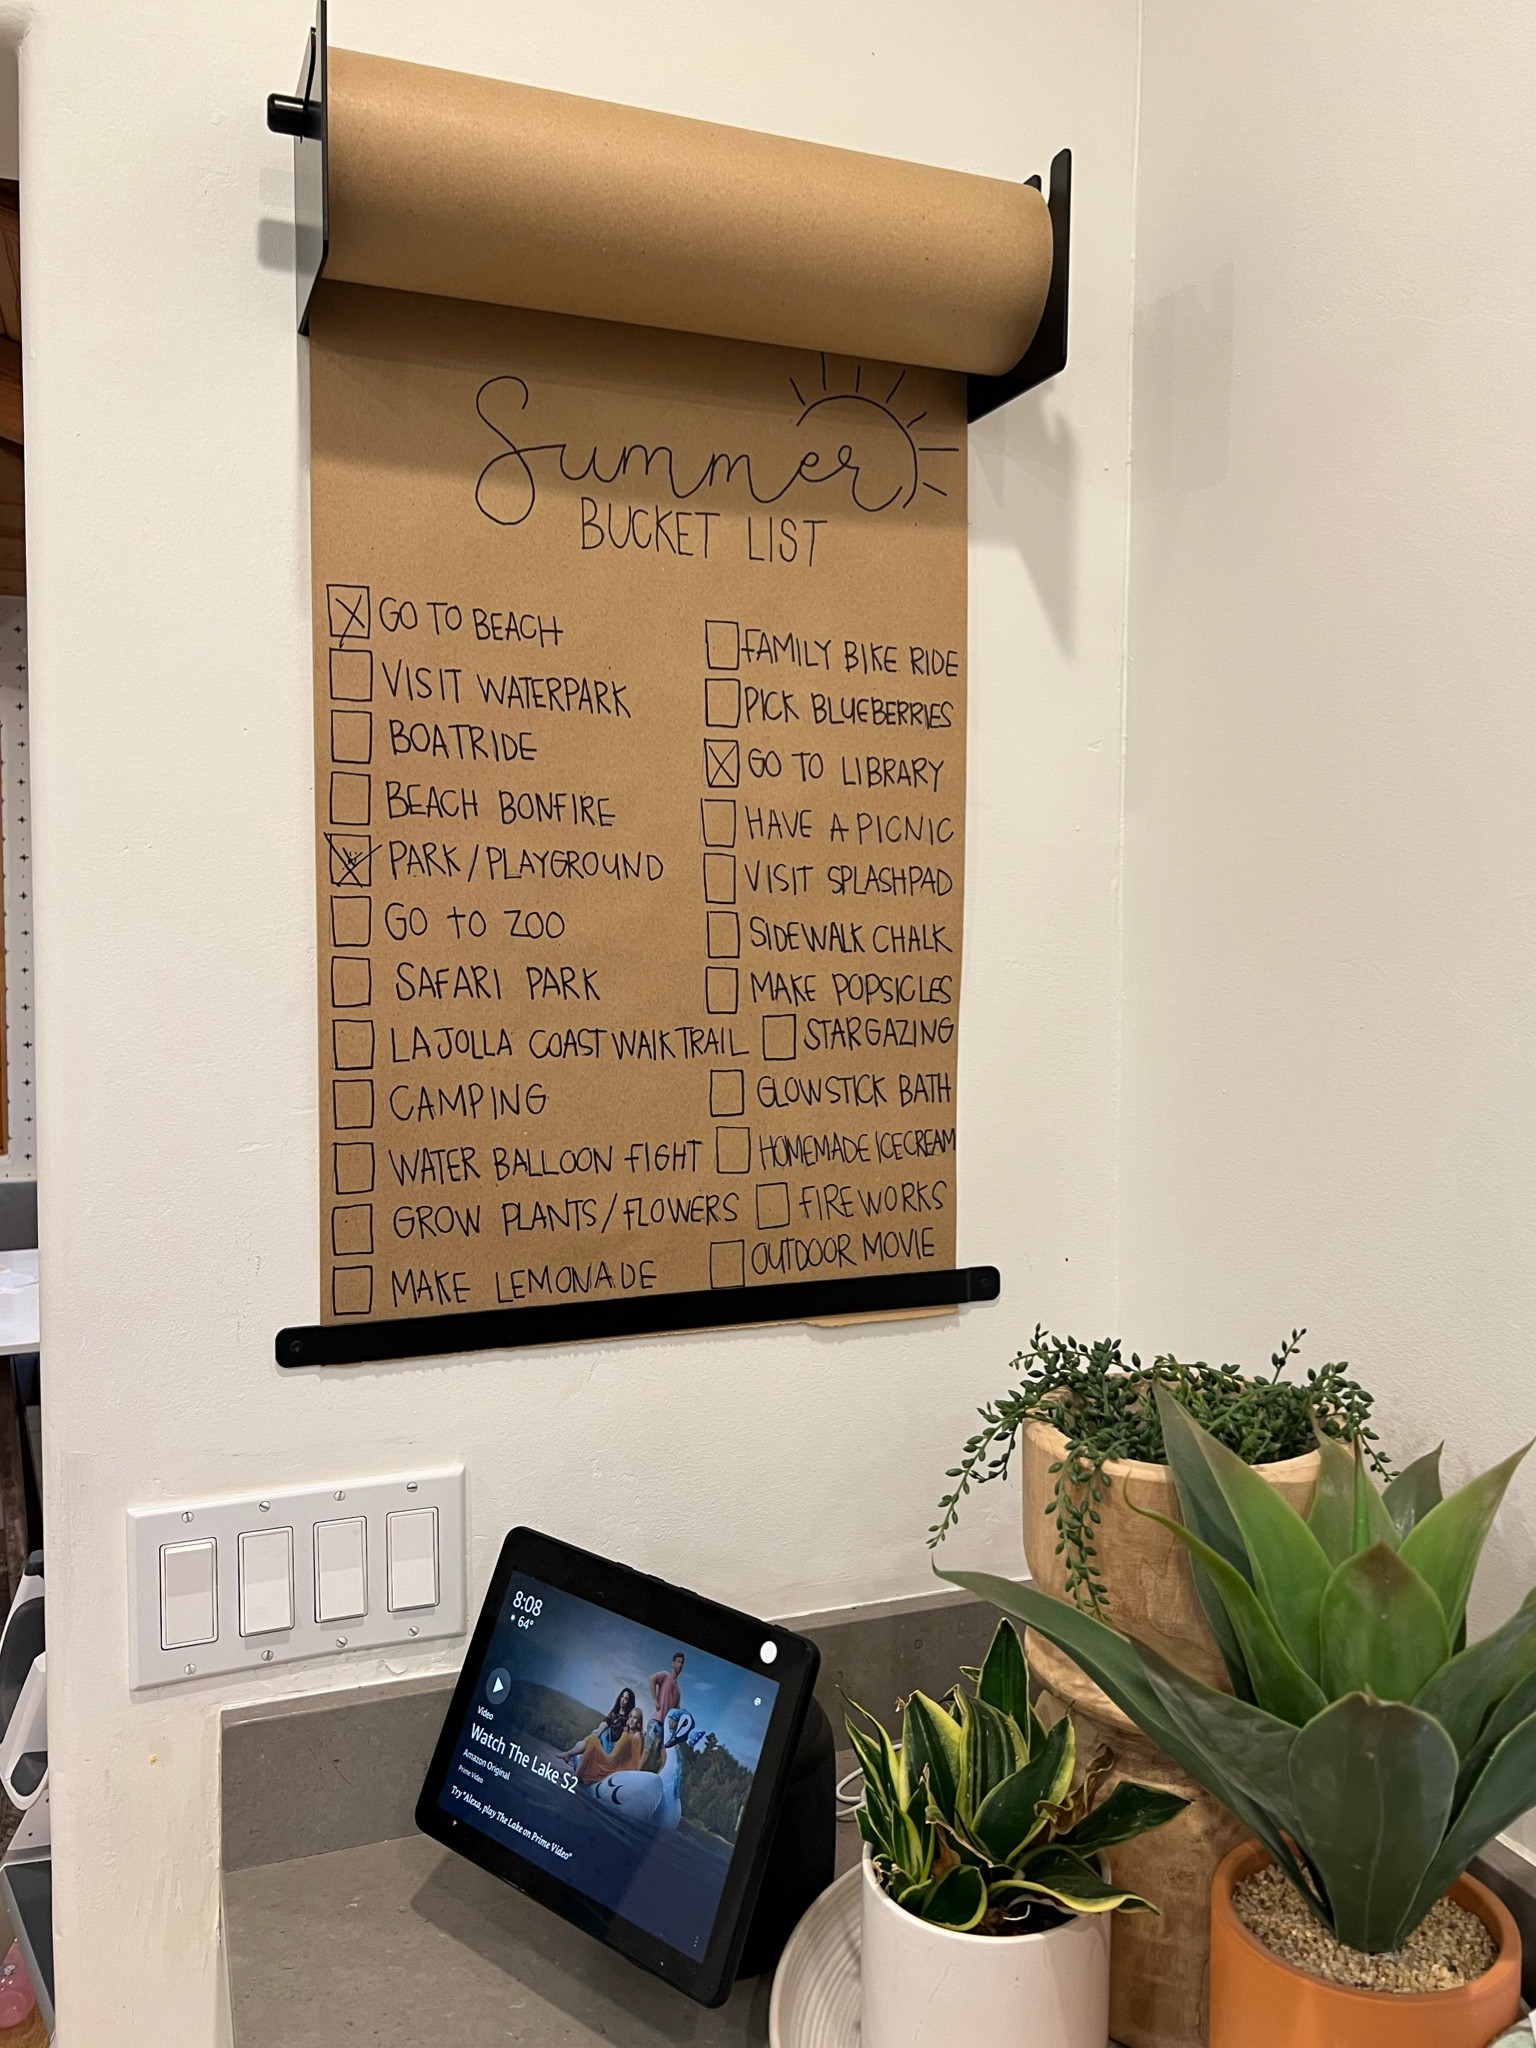 Summer
BUCKET LIST
GO TO BEACH
VISIT WATERPARK
BOATRIDE
BEACH BONFIRE
PARK/PLAYGROUND
GO TO ZOO
SAFARI PARK
LA JOLLA COAST WALK TRAIL
CAMPING
WATER BALLOON FIGHT
GROW PLANTS/FLOWERS
MAKE LEMONADE
FAMILY BIKE RIDE
PICK BLUEBERRIES
GO TO LIBRARY
HAVE A PICNIC
VISIT SPLASHPAD
SIDEWALK CHALK
MAKE POPSICLES
STARGAZING
GLOWSTICK BATH
HOMEMADE ICECREAM
FIREWORKS
OUTDOOR MOVIE
8:08
64°
Video
Watch The Lake S2
Amazon Original
Prime Video
Try "Alexa, play The Lake on Prime Video"